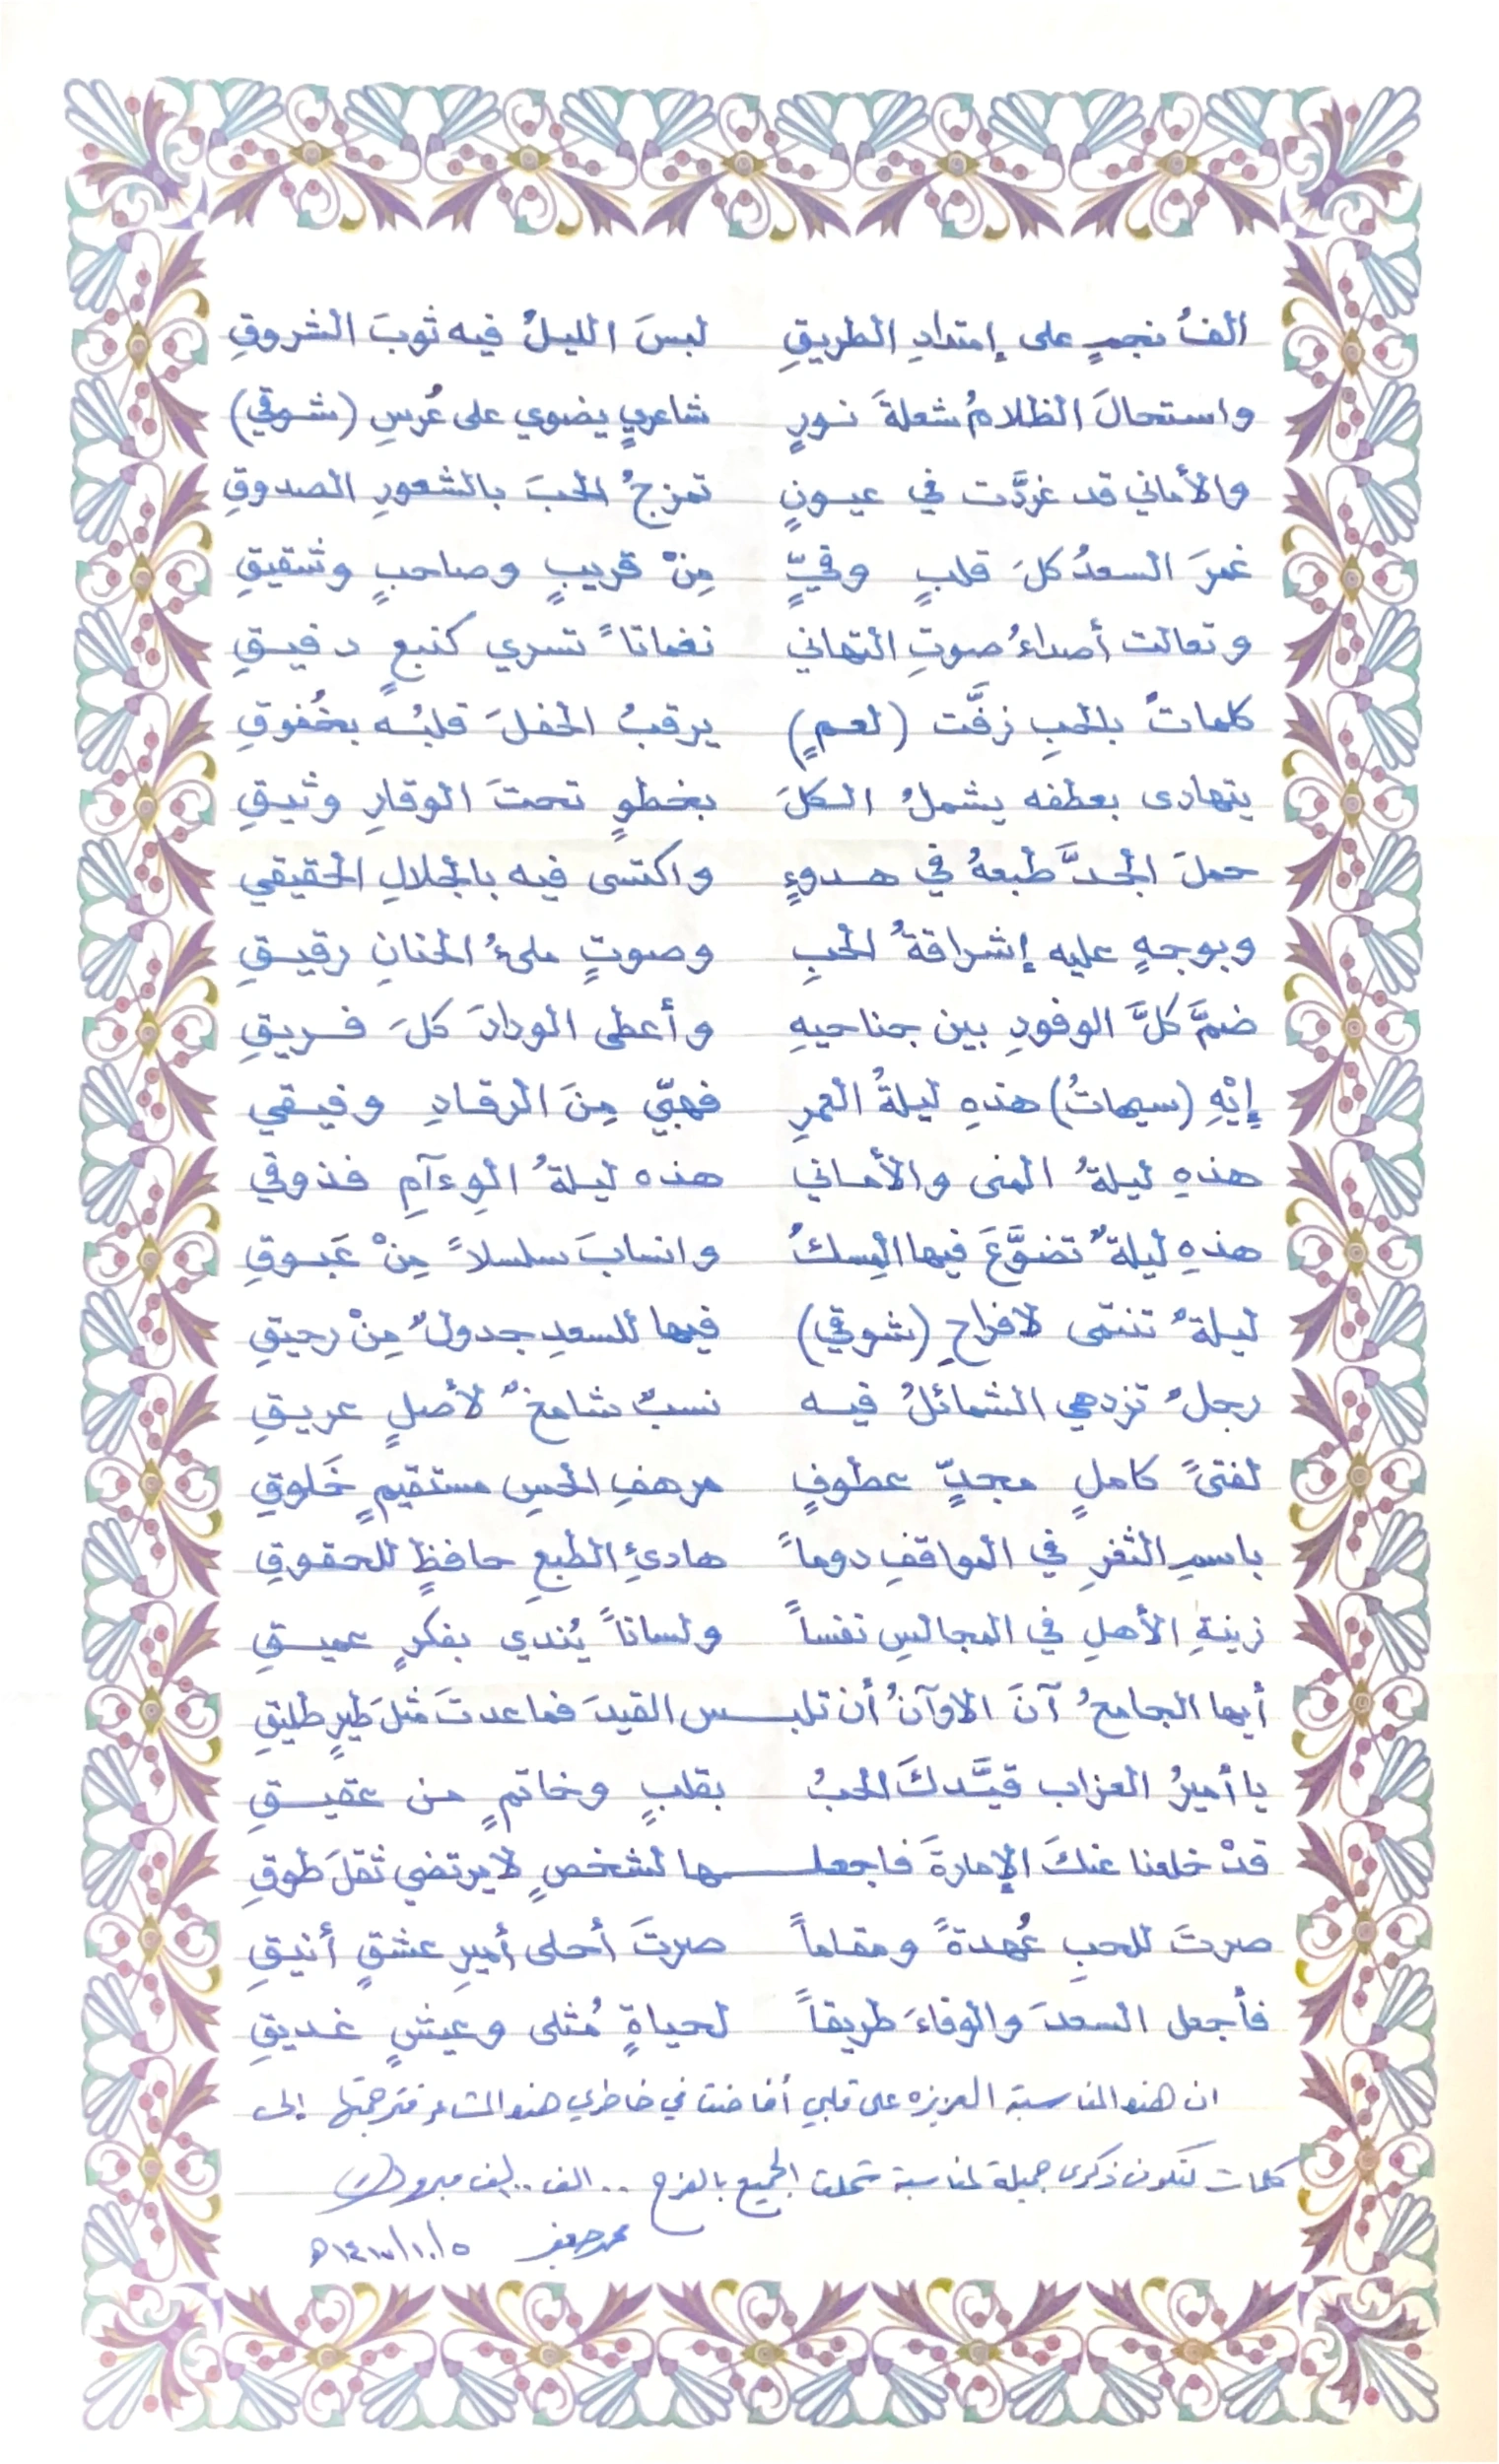 الفُ نجمٍ على إمتدادِ الطريقِ لبسَ الليلُ فيه ثوبَ الشروقِ
واستحالَ الظلامُ شعلةَ نورٍ شاعريٍ يضوي على عُرسِ (شوقي)
والأماني قد غرَّدت في عيونٍ تمزجُ الحبَ بالشعورِ الصدوقِ
غمرَ السعدُ كلَ قلبٍ وفيٍّ مِنْ قريبٍ وصاحبٍ وشقيقِ
وتعالت أصداءُ صوتِ التهاني نغماتاً تسري كنبعٍ دفيقِ
كلماتٌ بالحبِ زفَّت (لعمٍ) يرقبُ الحفلَ قلبُه بخُفوقِ
يتهادى بعطفه يشملُ الكلَ بخطوٍ تحتَ الوقارِ وثيقِ
حملَ الجدَّ طبعهُ في هدوءٍ واكتسى فيه بالجلالِ الحقيقي
وبوجهٍ عليه إشراقةُ الحبِ وصوتٍ ملئُ الحنانِ رقيقِ
ضمَّ كلَّ الوفودِ بين جناحيهِ وأعطى الودادَ كلَ فريقِ
إيْهِ (سيهاتُ) هذهِ ليلةُ العمرِ فهبّي مِنَ الرقادِ وفيقي
هذهِ ليلةُ المنى والأماني هذه ليلةُ الوِءآمِ فذوقي
هذهِ ليلةٌ تضوَّعَ فيها المِسكُ وانسابَ سلسلاً مِنْ عَبوقِ
ليلةٌ تنتمى لافراحِ (شوقي) فيها للسعدِ جدولٌ مِنْ رحيقِ
رجلٌ تزدهي الشمائلُ فيه نسبٌ شامخٌ لأصلٍ عريقِ
لفتىً كاملٍ مجدٍّ عطوفٍ مرهفِ الحسِ مستقيمٍ خَلوقِ
باسمِ الثغرِ في المواقفِ دوماً هادئِ الطبعِ حافظٍ للحقوقِ
زينةِ الأهلِ في المجالسِ نفساً ولساناً يُندي بفكرٍ عميقِ
أيها الجامحُ آنَ الاوآنُ أن تلبس القيدَ فما عدتَ مثلَ طيرٍ طليقِ
يا أميرُ العزاب قيَّدكَ الحبُ بقلبٍ وخاتمٍ من عقيقِ
قدْ خلعنا عنكَ الإمارةَ فاجعلها لشخصٍ لا يرتضي ثقلَ طوقِ
صرتَ للحبِ عُهدةً ومقاماً صرتَ أحلى أميرِ عشقٍ أنيقِ
فأجعل السعدَ والوفاءَ طريقاً لحياةٍ مُثلى وعيشٍ غديقِ
ان هذه المناسبة العزيزه على قلبي أفاضت في خاطري هذه المشاعر فترجمتها إلى
كلمات لتكون ذكرى جميلة لمناسبة شملت الجميع بالفرح .. الف .. الف مبروك
محمد جعفر ١٤١٧/١٠/٥ه